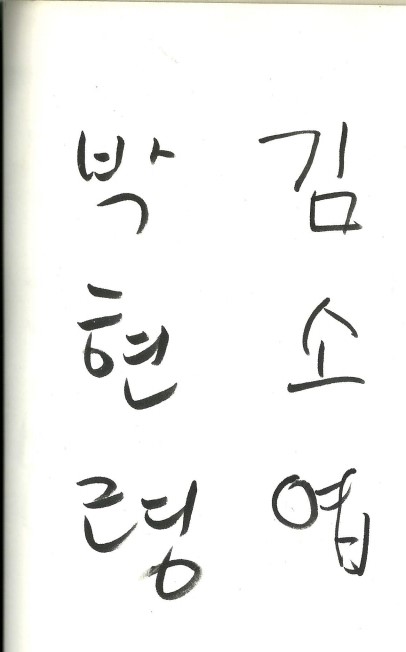 김소엽
박현령